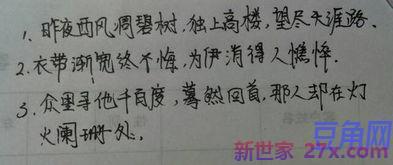 1. 昨夜西风凋碧树,独上高楼,望尽天涯路.
2. 衣带渐宽终不悔,为伊消得人憔悴.
3. 众里寻他千百度,蓦然回首,那人却在灯
火阑珊处.
豆角网
新世家 27x.com